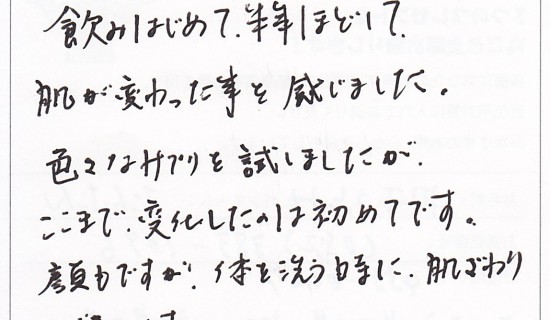 飲みはじめて、半年ほどして、
肌が変わった事を感じました。
色々なサプリを試しましたが、
ここまで、変化したのは初めてです。
顔もですが、体を洗う時に、肌ざわり